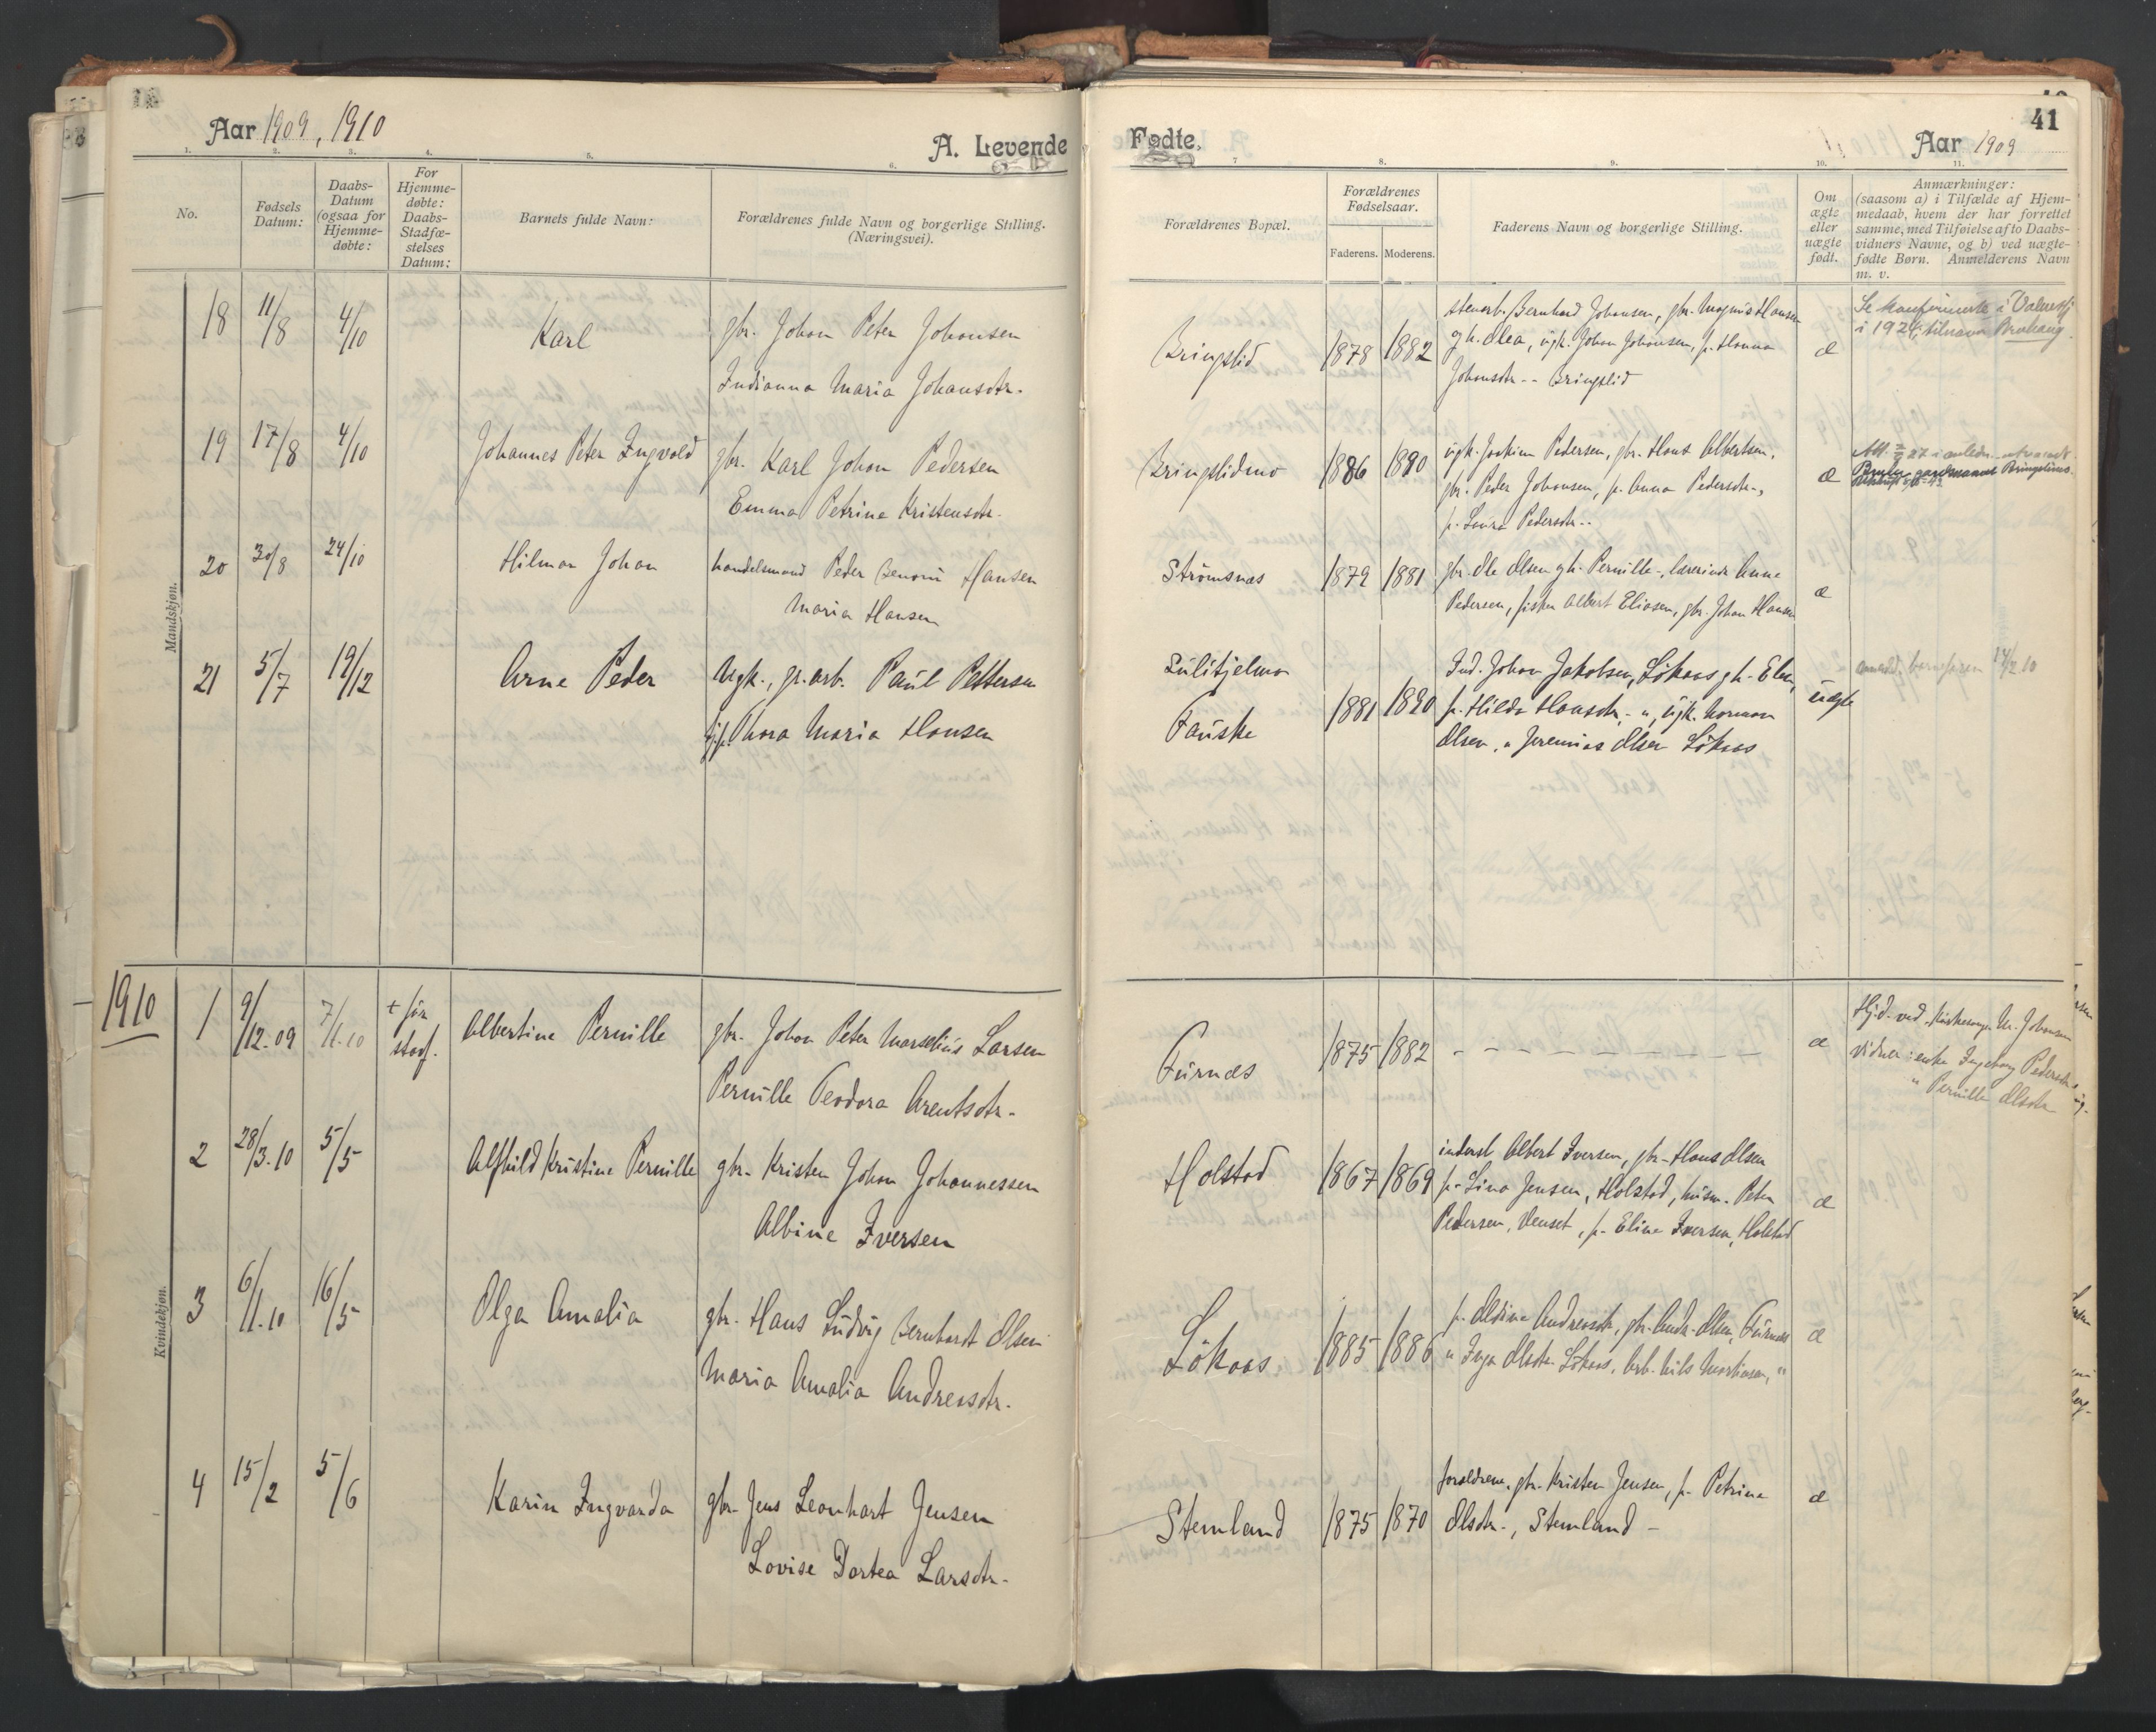 Aar 1909, 1910
A. Levende
Fødte.
Aar 1909
41
1. 2. 3. 4. 5. 6. 7 8. 9. 10. 11.
No.
Fødsels Datum:
Daabs-Datum (ogsaa for Hjemmedøbte:
For Hjemmedøbte: Daabs-Stadfæstelses Datum:
Barnets fulde Navn:
Forældrenes fulde Navn og borgerlige Stilling. (Næringsvei).
Forældrenes Bopæl.
Forældrenes Fødselsaar.
Faderens. Moderens.
Faderens Navn og borgerlige Stilling.
Om ægte eller uægte født.
Anmærkninger:
(saasom a) i Tilfælde af Hjem-
medaab, hvem der har forrettet
samme, med Tilføielse af to Daabs-
vidners Navne, og b) ved uægte-
fødte Børn. Anmelderens Navn
m. v.
Mandskjøn.
18 11/8 4/10 Karl gbr. Johan Peter Johansen
Indianna Maria Johansdtr.
Bringslid 1878 1882
stenarb. Bernhard Johansen, gbr. Magnus Hansen
gh. Olea, ugk. Johan Johansen, p. Hanna
Johansdtr -- Bringslid
æ
i 1924, tilnavn
19 17/8 4/10 Johannes Peter Ingvald gbr. Karl Johan Pedersen
Emma Petrine Kristensdtr.
Bringslidmo 1886 1890
ugk. Joakim Pedersen, gbr. Hans Albertsen,
gbr. Peder Johansen, p. Anna Pedersdtr.,
p. Laura Pedersdtr..
æ
20 30/8 24/10 Hilmar Johan handelsmand Peder Benoni Hansen
Maria Hansen
Strømsnæs 1879 1881
gbr. Ole Olsen gh. Pernille, lærerinde Anne
Pedersen, fisker Albert Eliasen, gbr. Johan Hansen
æ
21 5/7 19/12 Arne Peder Ugk., gr.arb. Paul Pettersen
Thora Maria Hansen
Sulitjelma
Fauske
1881 1890
Ind. Johan Jakobsen, Løkaas gh. Elen,
p. Hilda Hansdtr. - ", ugk. Norman
Olsen, " Jeremias Olsen Løkaas
uægte
14/2 10
1910
Kvindekjøn.
1 9/12.09 7/1.10 + før stadf. Albertine Pernille gbr. Johan Peter Marselius Larsen
Pernille Teodora Arentsdtr.
Furnæs 1875 1882 - - - - - - - - - æ
Hjd. ved. Kirkesanger M. Johansen
Vidner: enke Ingeborg Pedersdtr.
" Pernille Olsdtr
2 28/3.10 5/5 Alfhild Kristine Pernille gbr. Kristen Johan Johannessen
Albine Iversen
Holstad 1867 1869
inderst Albert Iversen, gbr. Hans Olsen
p. Lina Jensen, Holstad, husm. Peter
Pedersen, Venset, p. Eline Iversen, Holstad
æ
3 6/1.10 16/5 Olga Amalia gbr. Hans Ludvig Bernhardt Olsen
Maria Amalia Andreasdtr.
Løkaas 1885 1886
p. Oldine Andreasdtr., gbr. Andr. Olsen, Furnæs
" Inga Olsdtr. Løkaas, Arb. Nils Martinsen, "
æ
4 15/2 5/6 Karin Ingvarda gbr. Jens Leonhart Jensen
Lovise Dortea Larsdtr.
Stemland 1875 1870
forældrene, gbr. Kristen Jensen, p. Petrine
Olsdtr., Stemland -
æ